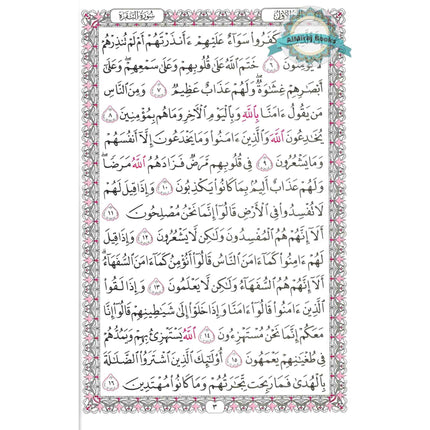 سُورَةُ البَقَرَةِ
AlMiraj Books
كَفَرُوا۟ سَوَآءٌ عَلَيْهِمْ ءَأَنذَرْتَهُمْ أَمْ لَمْ تُنذِرْهُمْ
يُؤْمِنُونَ ٦ خَتَمَ ٱللَّهُ عَلَىٰ قُلُوبِهِمْ وَعَلَىٰ سَمْعِهِمْ ۖ وَعَلَىٰٓ
أَبْصَٰرِهِمْ غِشَٰوَةٌ ۖ وَلَهُمْ عَذَابٌ عَظِيمٌ ٧ وَمِنَ ٱلنَّاسِ
مَن يَقُولُ ءَامَنَّا بِٱللَّهِ وَبِٱلْيَوْمِ ٱلْءَاخِرِ وَمَا هُم بِمُؤْمِنِينَ ٨
يُخَٰدِعُونَ ٱللَّهَ وَٱلَّذِينَ ءَامَنُوا۟ وَمَا يَخْدَعُونَ إِلَّآ أَنفُسَهُمْ
وَمَا يَشْعُرُونَ ٩ فِى قُلُوبِهِم مَّرَضٌ فَزَادَهُمُ ٱللَّهُ مَرَضًا ۖ
وَلَهُمْ عَذَابٌ أَلِيمٌۢ بِمَا كَانُوا۟ يَكْذِبُونَ ١٠ وَإِذَا قِيلَ لَهُمْ
لَا تُفْسِدُوا۟ فِى ٱلْأَرْضِ قَالُوٓا۟ إِنَّمَا نَحْنُ مُصْلِحُونَ ١١
أَلَآ إِنَّهُمْ هُمُ ٱلْمُفْسِدُونَ وَلَٰكِن لَّا يَشْعُرُونَ ١٢ وَإِذَا قِيلَ
لَهُمْ ءَامِنُوا۟ كَمَآ ءَامَنَ ٱلنَّاسُ قَالُوٓا۟ أَنُؤْمِنُ كَمَآ ءَامَنَ ٱلسُّفَهَآءُ ۗ
أَلَآ إِنَّهُمْ هُمُ ٱلسُّفَهَآءُ وَلَٰكِن لَّا يَعْلَمُونَ ١٣ وَإِذَا لَقُوا۟
ٱلَّذِينَ ءَامَنُوا۟ قَالُوٓا۟ ءَامَنَّا وَإِذَا خَلَوْا۟ إِلَىٰ شَيَٰطِينِهِمْ قَالُوٓا۟ إِنَّا
مَعَكُمْ إِنَّمَا نَحْنُ مُسْتَهْزِءُونَ ١٤ ٱللَّهُ يَسْتَهْزِئُ بِهِمْ وَيَمُدُّهُمْ
فِى طُغْيَٰنِهِمْ يَعْمَهُونَ ١٥ أُو۟لَٰٓئِكَ ٱلَّذِينَ ٱشْتَرَوُا۟ ٱلضَّلَٰلَةَ
بِٱلْهُدَىٰ فَمَا رَبِحَت تِّجَٰرَتُهُمْ وَمَا كَانُوا۟ مُهْتَدِينَ ١٦
٣